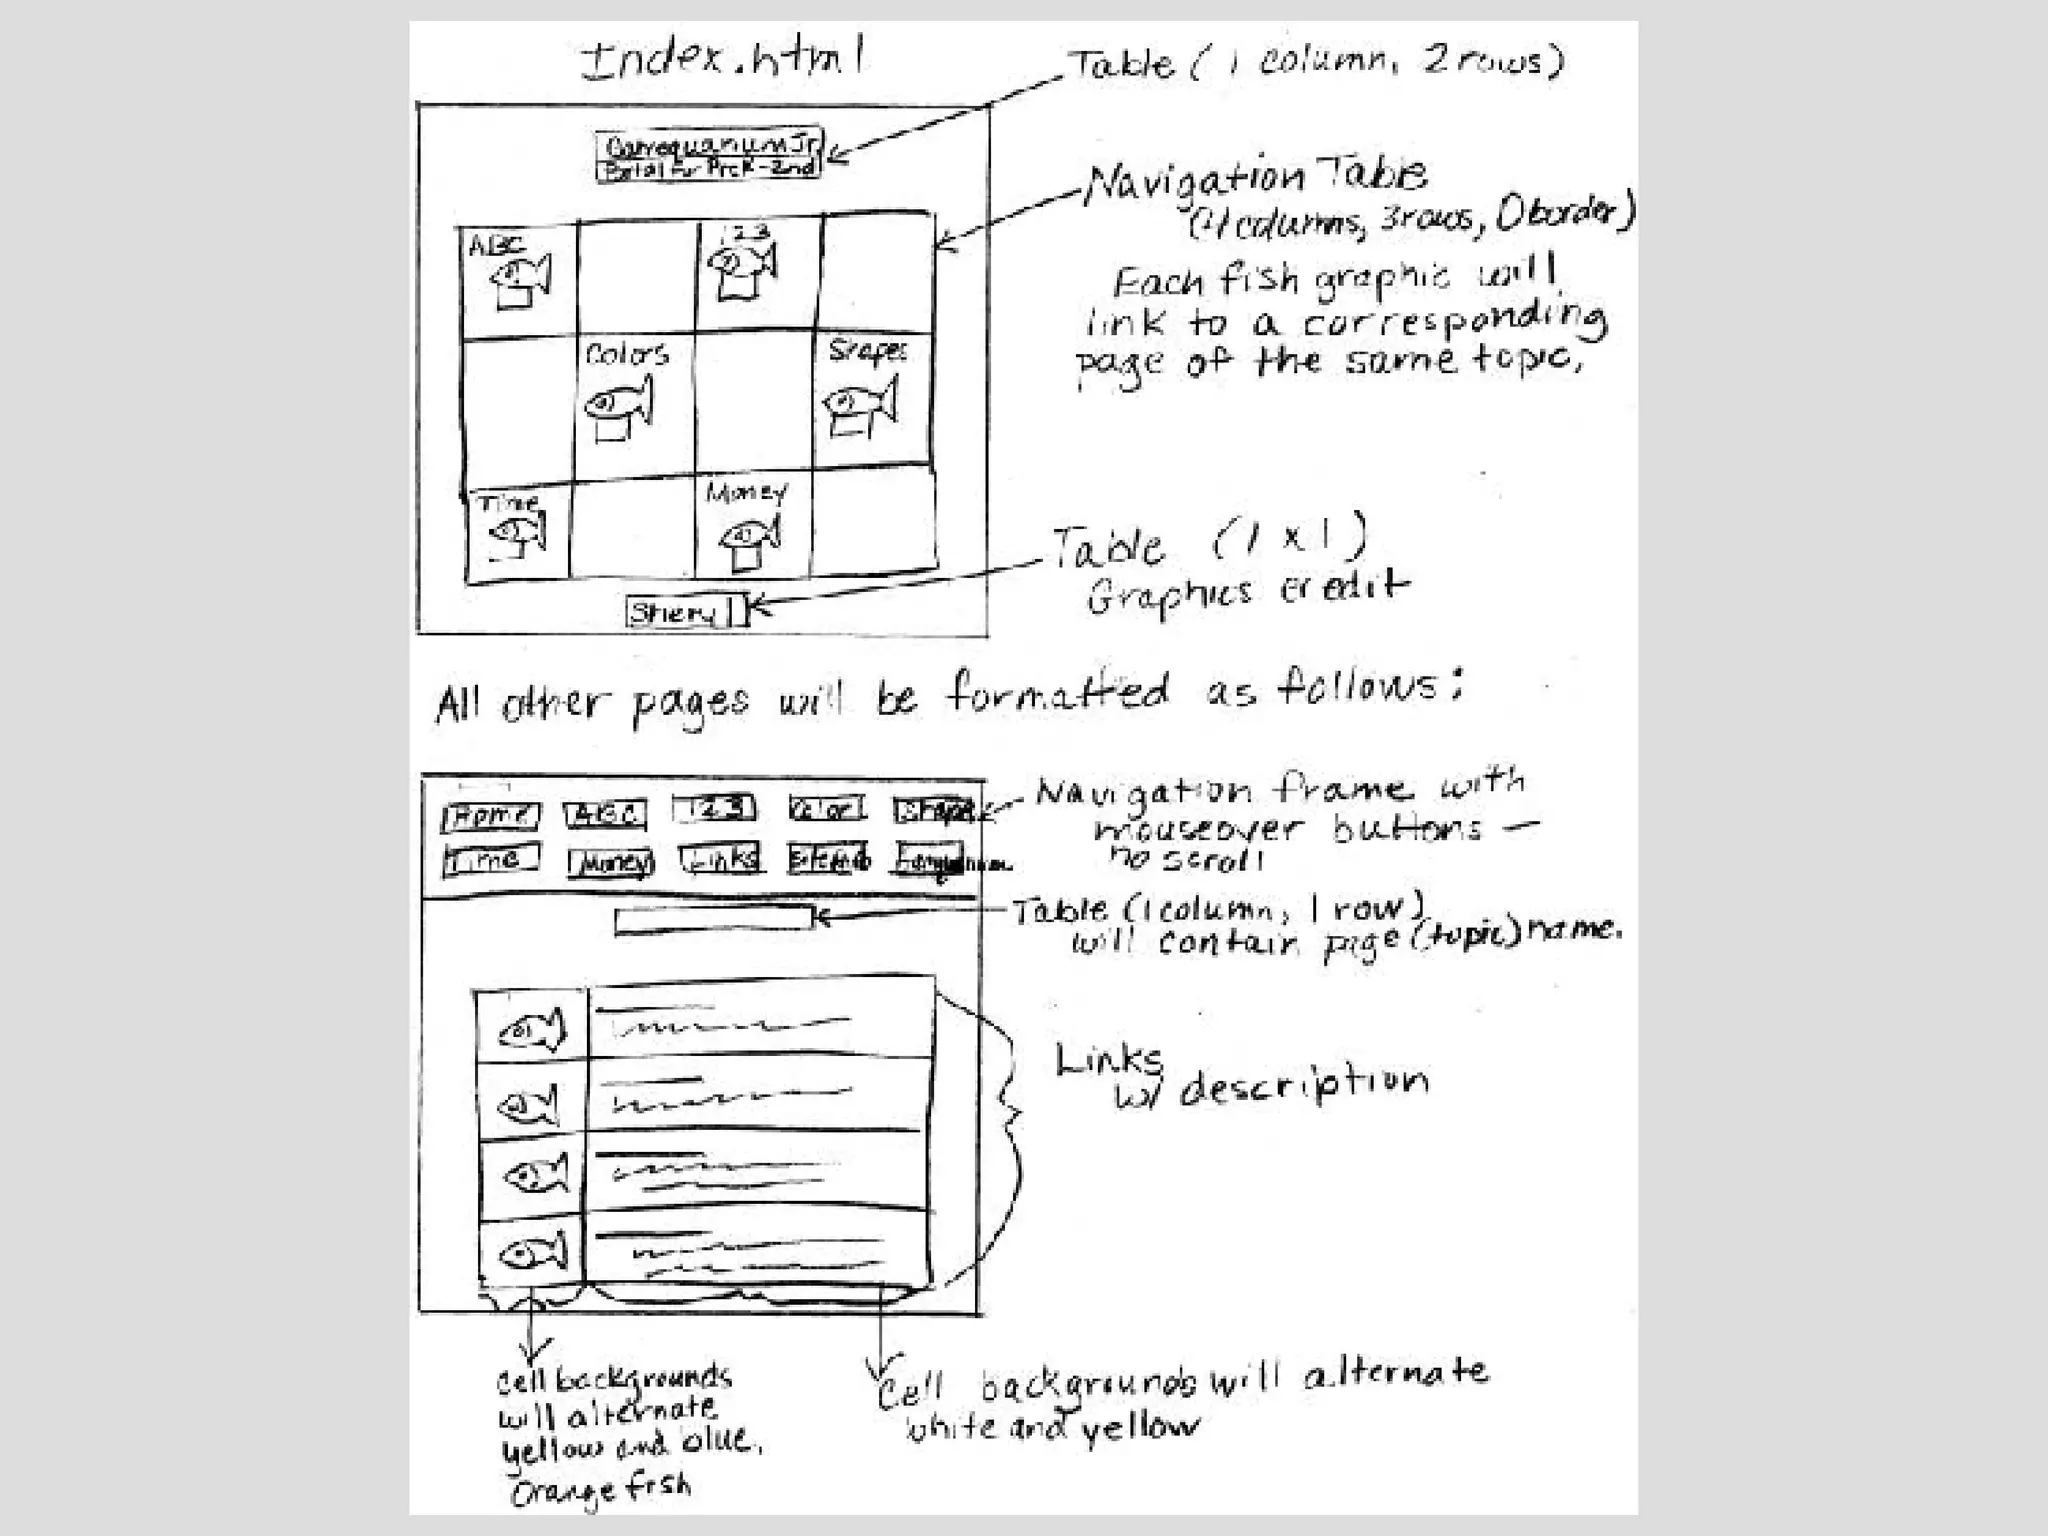 Index.html
Table (1 column, 2 rows)
Gamequarium Jr.
Portal for PreK-2nd
Navigation Table
(4 columns, 3 rows, 0 border)
Each fish graphic will
link to a corresponding
page of the same topic.
ABC
123
Colors
Shapes
Time
Money
Table (1 x 1)
Graphics credit
All other pages will be formatted as follows:
Home ABC 123 Color Shape
Time Money Links Sitemap
Navigation frame with
mouseover buttons —
no scroll
Table (1 column, 1 row)
will contain page (topic) name.
Links
w/ description
Cell backgrounds
will alternate
yellow and blue.
Orange fish
Cell backgrounds will alternate
white and yellow